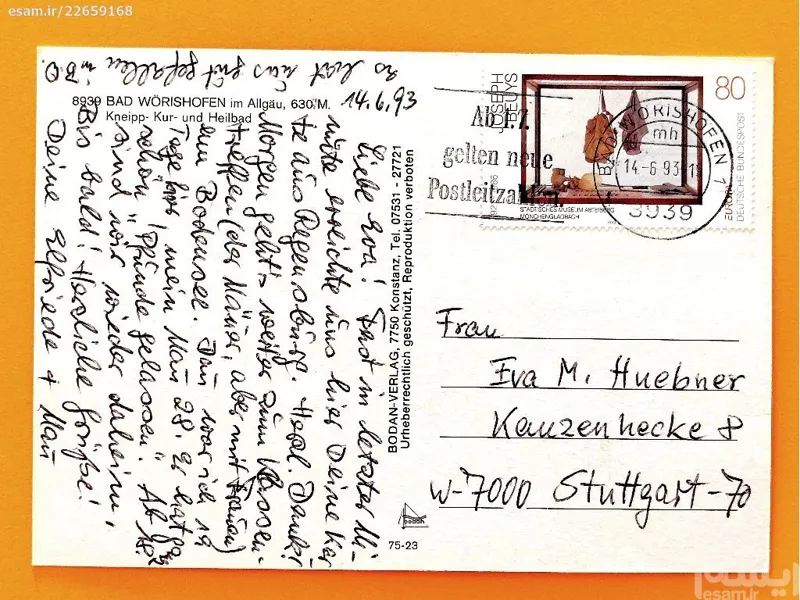 esam.ir/22659168
Es hat uns gut gefallen in B.O.
8939 BAD WÖRISHOFEN im Allgäu, 630 M.
Kneipp- Kur- und Heilbad
14.6.93
Liebe Eva! Fast in letzter Mi-
nute erreichte uns hier Deine Kar
te aus Regensburg. Herzl. Dank!
Morgen geht's weiter zum Klassen-
treffen (der Männer, aber mit Frauen)
am Bodensee. Dann war ich 19
Tage hier, mein Mann 28. Er hat ganz
schön "Pfunde gelassen". Ab
sind wir wieder daheim.
Bis bald! Herzliche Grüße!
Deine Elfriede + Mann
BODAN-VERLAG, 7750 Konstanz, Tel. 07531 - 27721
Urheberrechtlich geschützt, Reproduktion verboten
bodan
75-23
Ab 1.7.
gelten neue
Postleitzahlen
JOSEPH
BEUYS
80
STÄDTISCHES MUSEUM ABTEIBERG
MÖNCHENGLADBACH
EUROPA
DEUTSCHE BUNDESPOST
BAD WÖRISHOFEN 1
mh
14.-6.93.-
8939
Frau
Eva M. Huebner
Kauzenhecke 8
W-7000 Stuttgart-70
ایسام
esam.ir